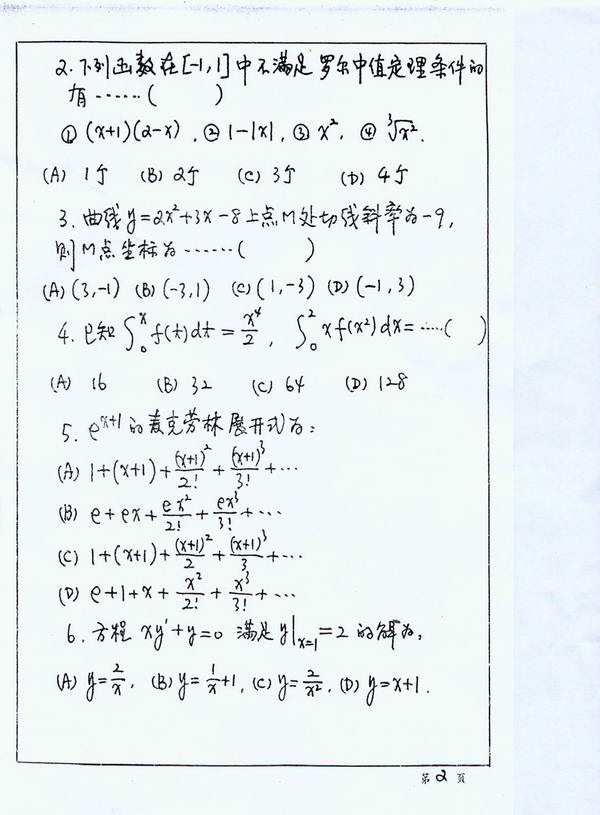 2. 下列函数在[-1,1]中不满足罗尔中值定理条件的
有······(    )
① (x+1)(2-x), ② 1-|x|, ③ x², ④ ∛x².
(A) 1个 (B) 2个 (C) 3个 (D) 4个
3. 曲线y=2x²+3x-8上点M处切线斜率为-9,
则M点坐标为······(    )
(A) (3,-1) (B) (-3,1) (C) (1,-3) (D) (-1,3)
4. 已知∫₀ˣ f(t)dt = x⁴/2, ∫₀² xf(x²)dx=·····(    )
(A) 16 (B) 32 (C) 64 (D) 128
5. eˣ⁺¹的麦克劳林展开式为:
(A) 1+(x+1)+(x+1)²/2!+(x+1)³/3!+···
(B) e+ex+ex²/2!+ex³/3!+···
(C) 1+(x+1)+(x+1)²/2+(x+1)³/3+···
(D) e+1+x+x²/2!+x³/3!+···
6. 方程 xy'+y=0 满足y|ₓ₌₁=2的解为:
(A) y=2/x, (B) y=1/x+1, (C) y=2/x², (D) y=x+1.
第2頁